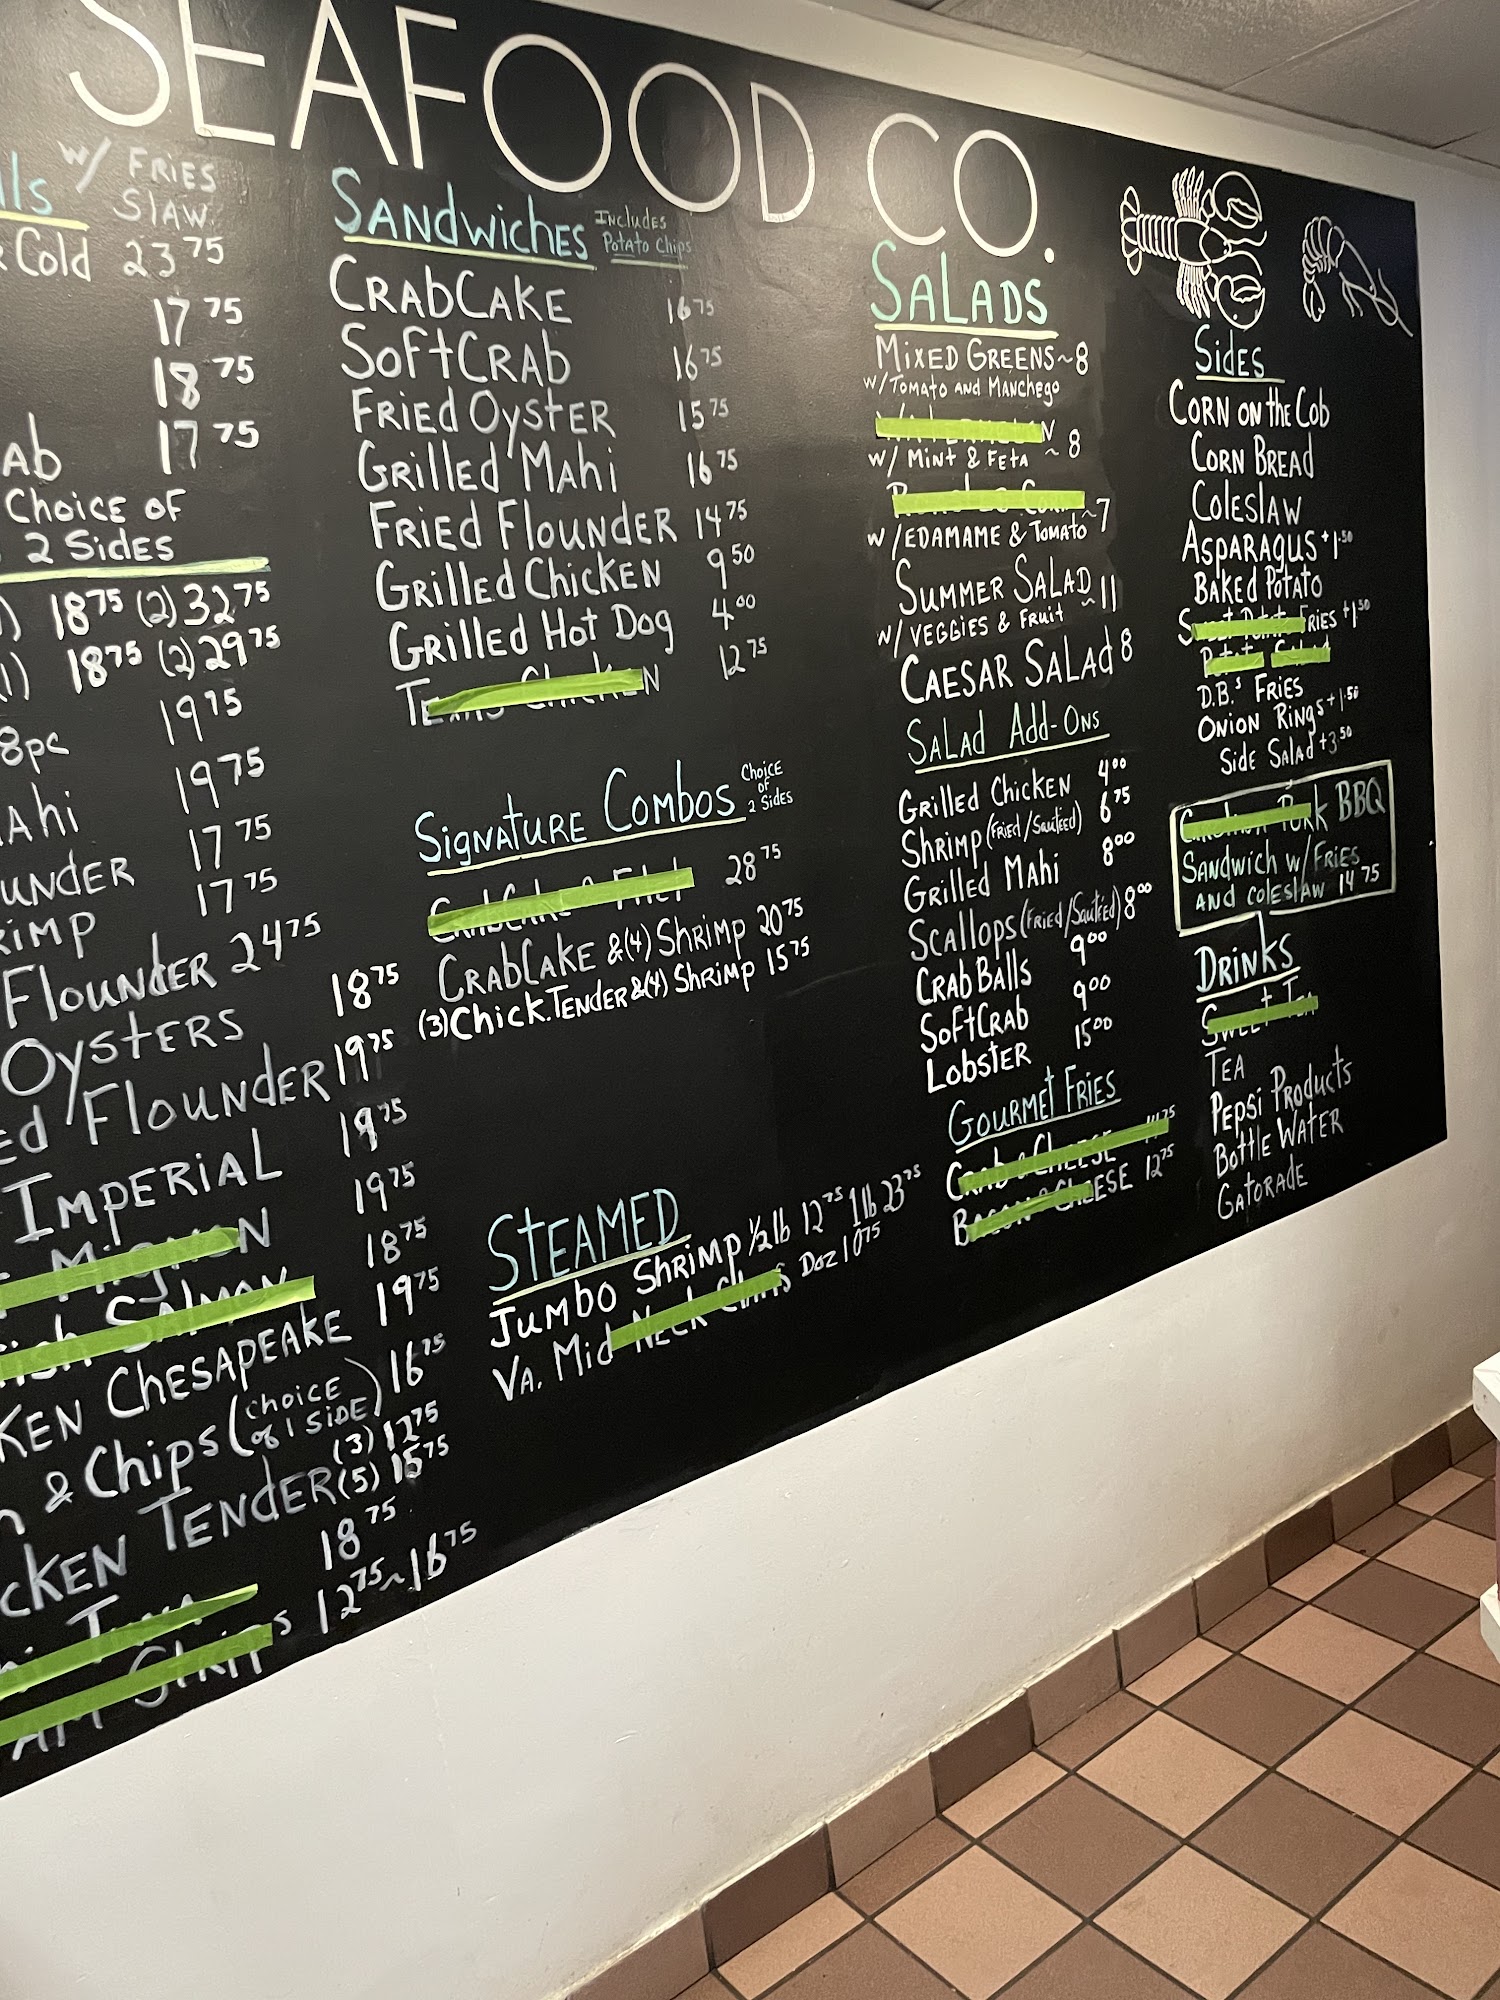 SEAFOOD CO.
w/ FRIES
SLAW
Cold 23 75
17 75
18 75
17 75
CHOICE OF
2 SIDES
18 75 (2) 32 75
18 75 (2) 29 75
8pc 19 75
19 75
17 75
17 75
FLOUNDER 24 75
OYSTERS 18 75
FLOUNDER 19 75
IMPERIAL 19 75
19 75
18 75
CHESAPEAKE 19 75
& CHIPS (CHOICE of 1 SIDE) 16 75
(3) 12 75
TENDER (5) 15 75
18 75
12 75 ~ 16 75
SANDWICHES INCLUDES
POTATO CHIPS
CRABCAKE 16 75
SOFTCRAB 16 75
FRIED OYSTER 15 75
GRILLED MAHI 16 75
FRIED FLOUNDER 14 75
GRILLED CHICKEN 9 50
GRILLED HOT DOG 4 00
12 75
SIGNATURE COMBOS CHOICE
OF
2 SIDES
28 75
CRABCAKE &(4) SHRIMP 20 75
(3) CHICK. TENDER &(4) SHRIMP 15 75
STEAMED
JUMBO SHRIMP 1/2 lb 12 75 1 lb 23 75
VA. MID NECK DOZ 10 75
SALADS
MIXED GREENS ~ 8
W/ TOMATO AND MANCHEGO
W/ MINT & FETA ~ 8
W/ EDAMAME & TOMATO ~ 7
SUMMER SALAD
W/ VEGGIES & FRUIT ~ 11
CAESAR SALAD 8
SALAD ADD-ONS
GRILLED CHICKEN 4 00
SHRIMP (FRIED/SAUTÉED) 6 75
GRILLED MAHI 8 00
SCALLOPS (FRIED/SAUTÉED) 8 00
CRAB BALLS 9 00
SOFTCRAB 9 00
LOBSTER 15 00
GOURMET FRIES
CHEESE
12 75
SIDES
CORN ON THE COB
CORN BREAD
COLESLAW
ASPARAGUS +1.50
BAKED POTATO
FRIES +1 50
D.B.'s FRIES
ONION RINGS +1.50
SIDE SALAD +3 50
BBQ
SANDWICH W/ FRIES
AND COLESLAW 14 75
DRINKS
TEA
PEPSI PRODUCTS
BOTTLE WATER
GATORADE